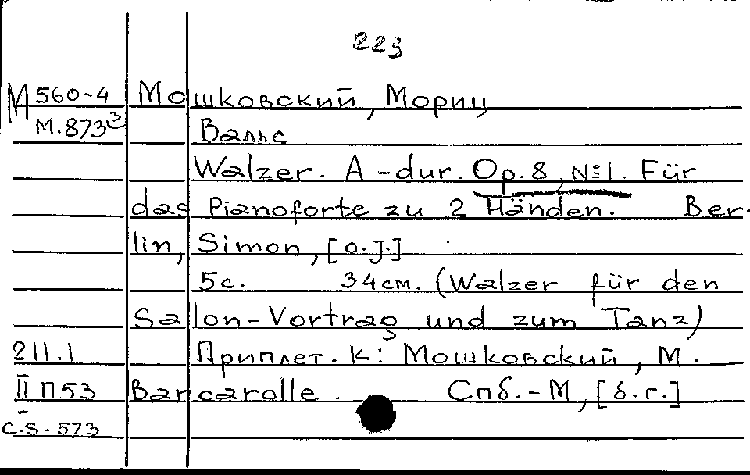 223
М 560-4 Мошковский, Мориц
М.873³ Вальс
Walzer. A-dur. Op.8, №1. Für
das Pianoforte zu 2 Händen. Ber-
lin, Simon, [o.J.]
5с. 34см. (Walzer für den
Salon-Vortrag und zum Tanz)
211.1 Приплет. к: Мошковский, М.
II П53 Barcarolle. Спб.-М, [б.г.]
С.8-573